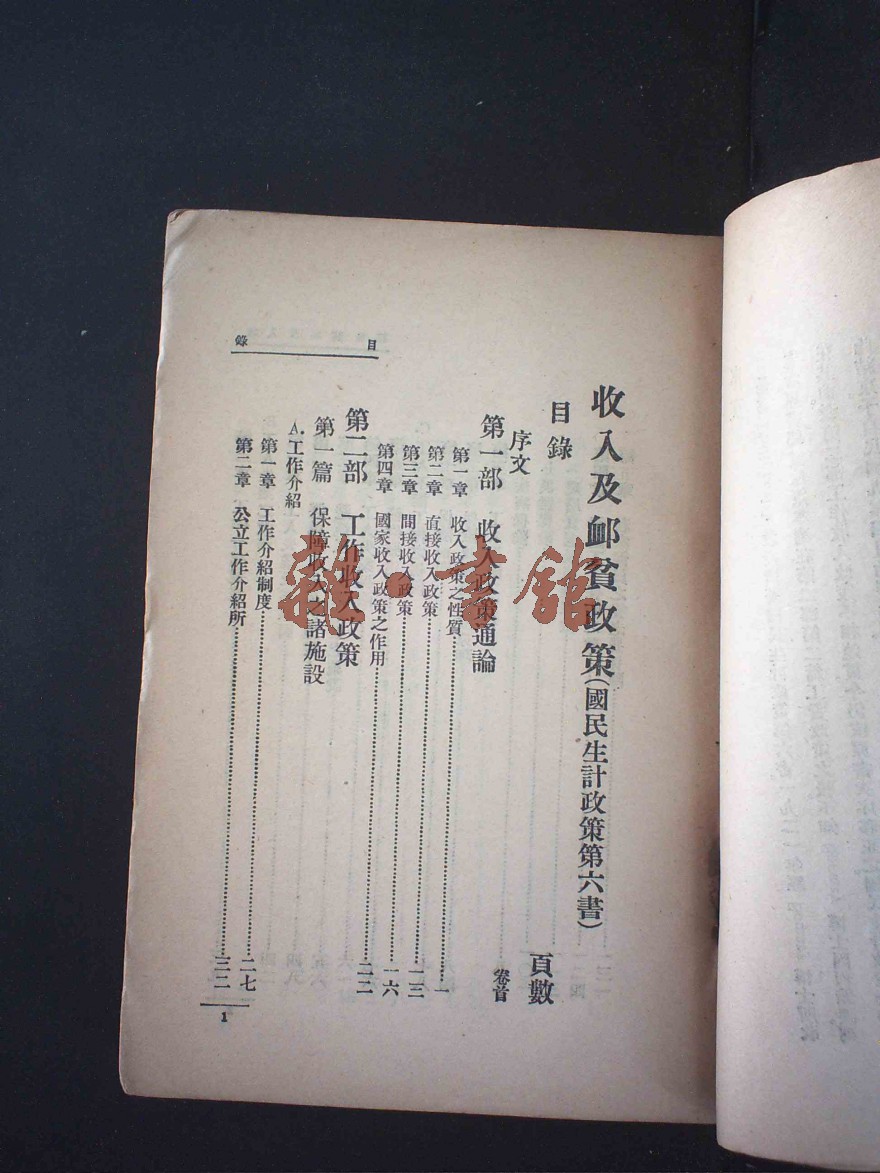 目錄
收入及卹貧政策(國民生計政策第六書)
目錄 頁數
序文 卷首
第一部 收入政策通論
第一章 收入政策之性質……一
第二章 直接收入政策……一三
第三章 間接收入政策……一六
第四章 國家收入政策之作用……二二
第二部 工作收入政策
第一篇 保障收入之諸施設
A.工作介紹
第一章 工作介紹制度……二七
第二章 公立工作介紹所……三二
1
雜·書館